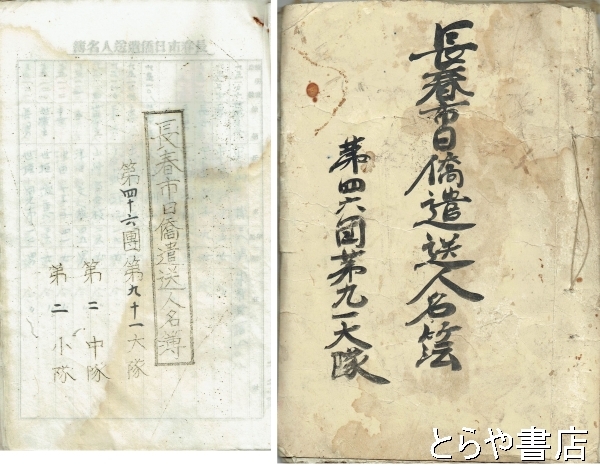 長春市日僑遣送人名簿
長春市日僑遣送人名簿
第四十六團第九十一大隊
第二中隊
第二小隊
長春市日僑遣送人名簿
第四六团第九一大隊
とらや書店